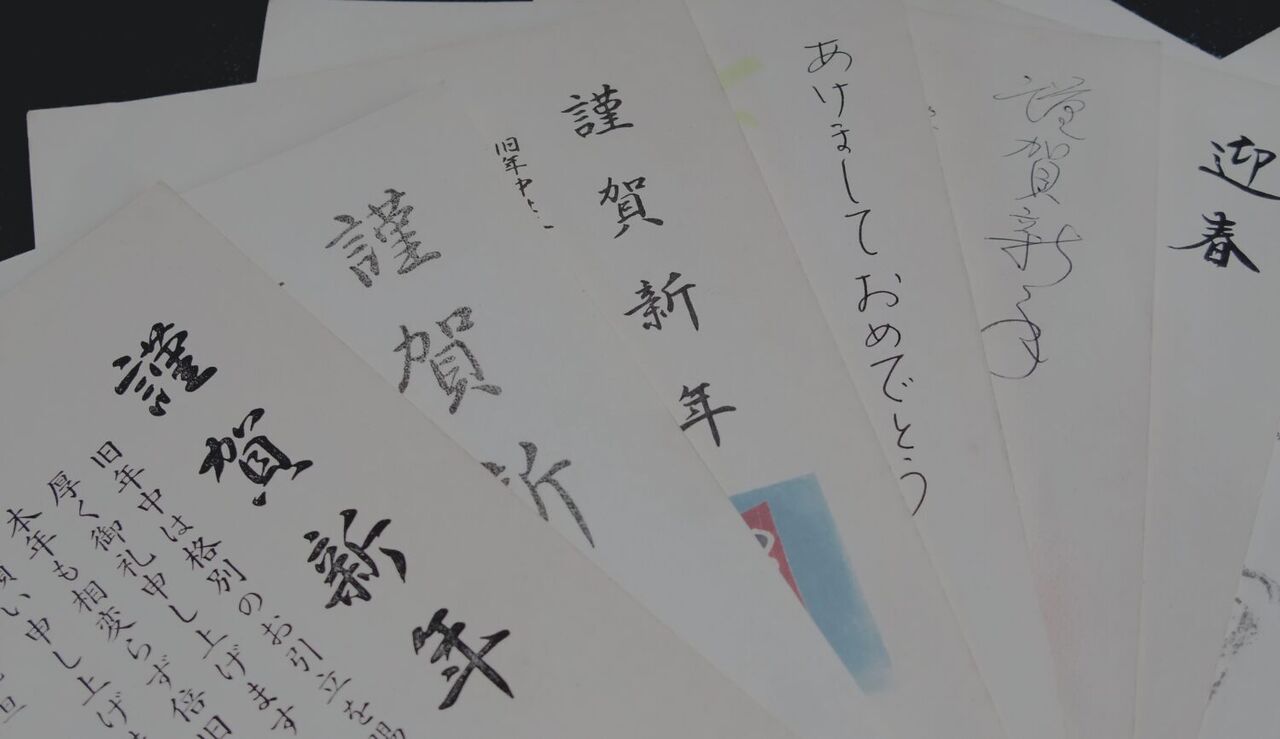 謹賀新年
旧年中は格別のお引立を賜
厚く御礼申し上げます
本年も相変らず倍旧
願い申し上げま
謹賀新
旧年中は
謹賀新年
あけましておめでとう
謹賀新年
迎春